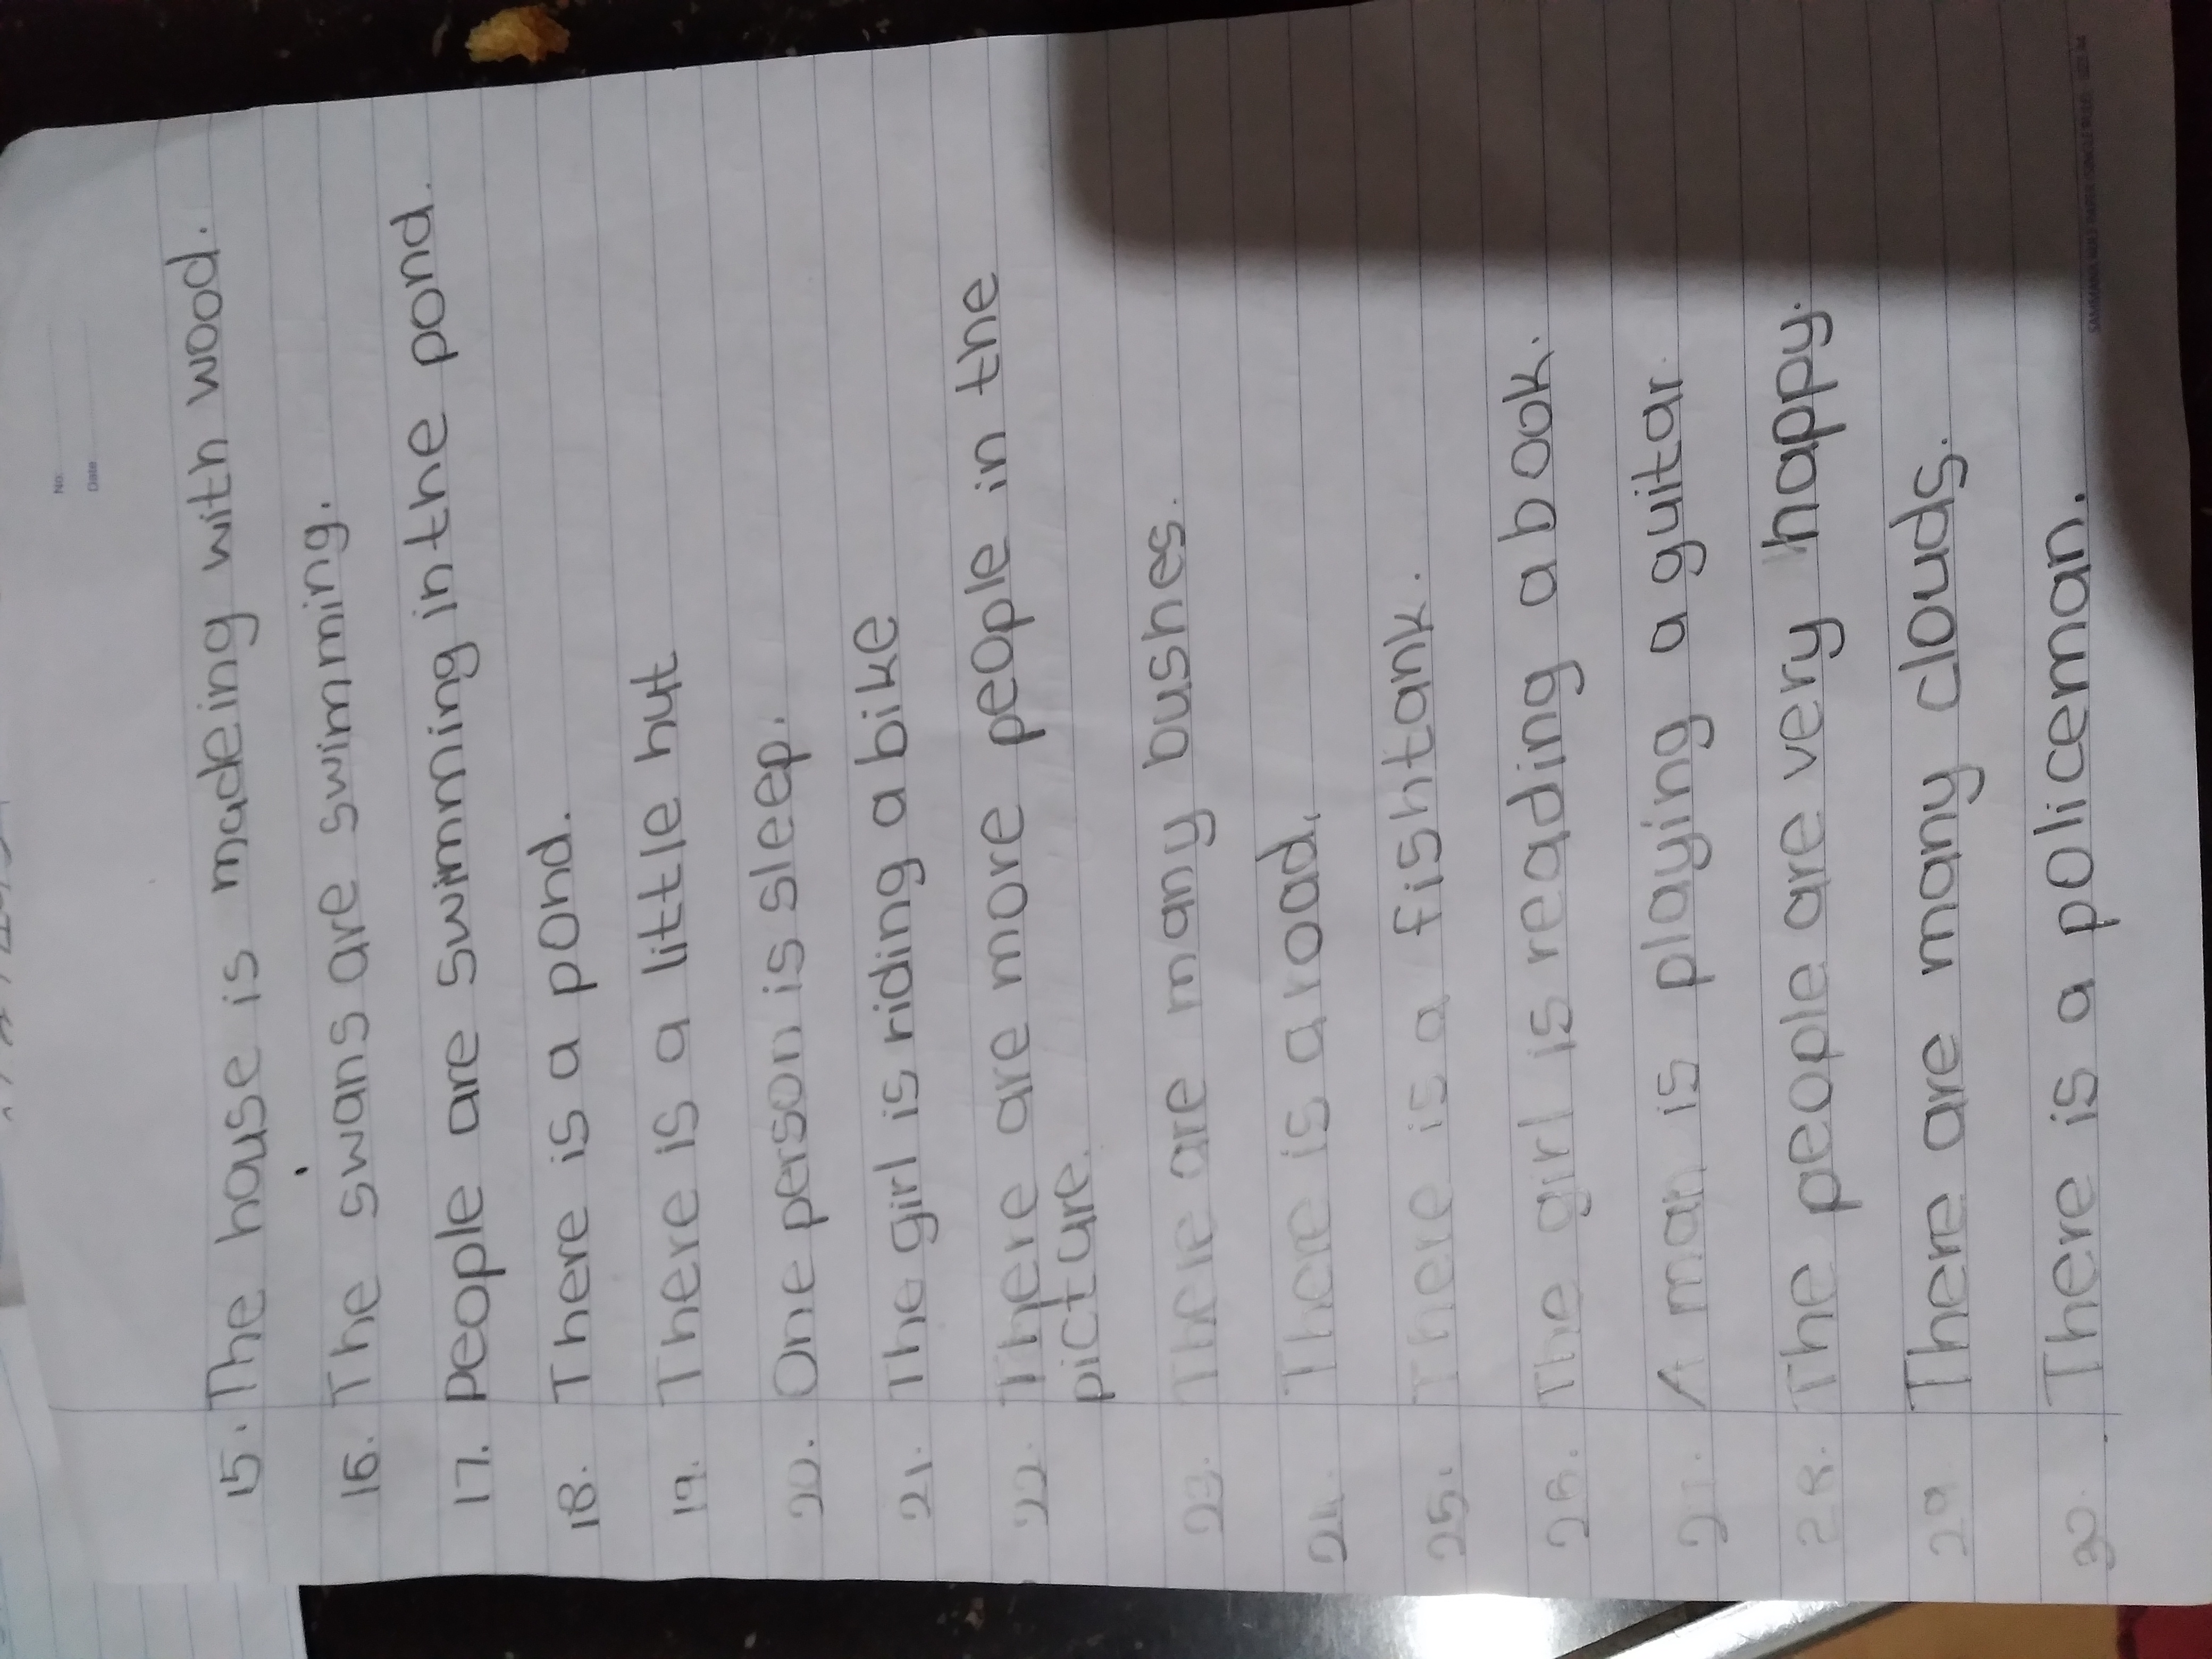 No:
Date
15. The house is madeing with wood.
16. The swans are swimming.
17. people are swimming in the pond.
18. There is a pond.
19. There is a little hut
20. One person is sleep.
21. The girl is riding a bike
22. There are more people in the
picture.
23. There are many bushes.
24. There is a road.
25. There is a fishtank.
26. The girl is reading a book.
27. A man is playing a guitar.
28. The people are very happy.
29 There are many clouds.
30. There is a policeman.